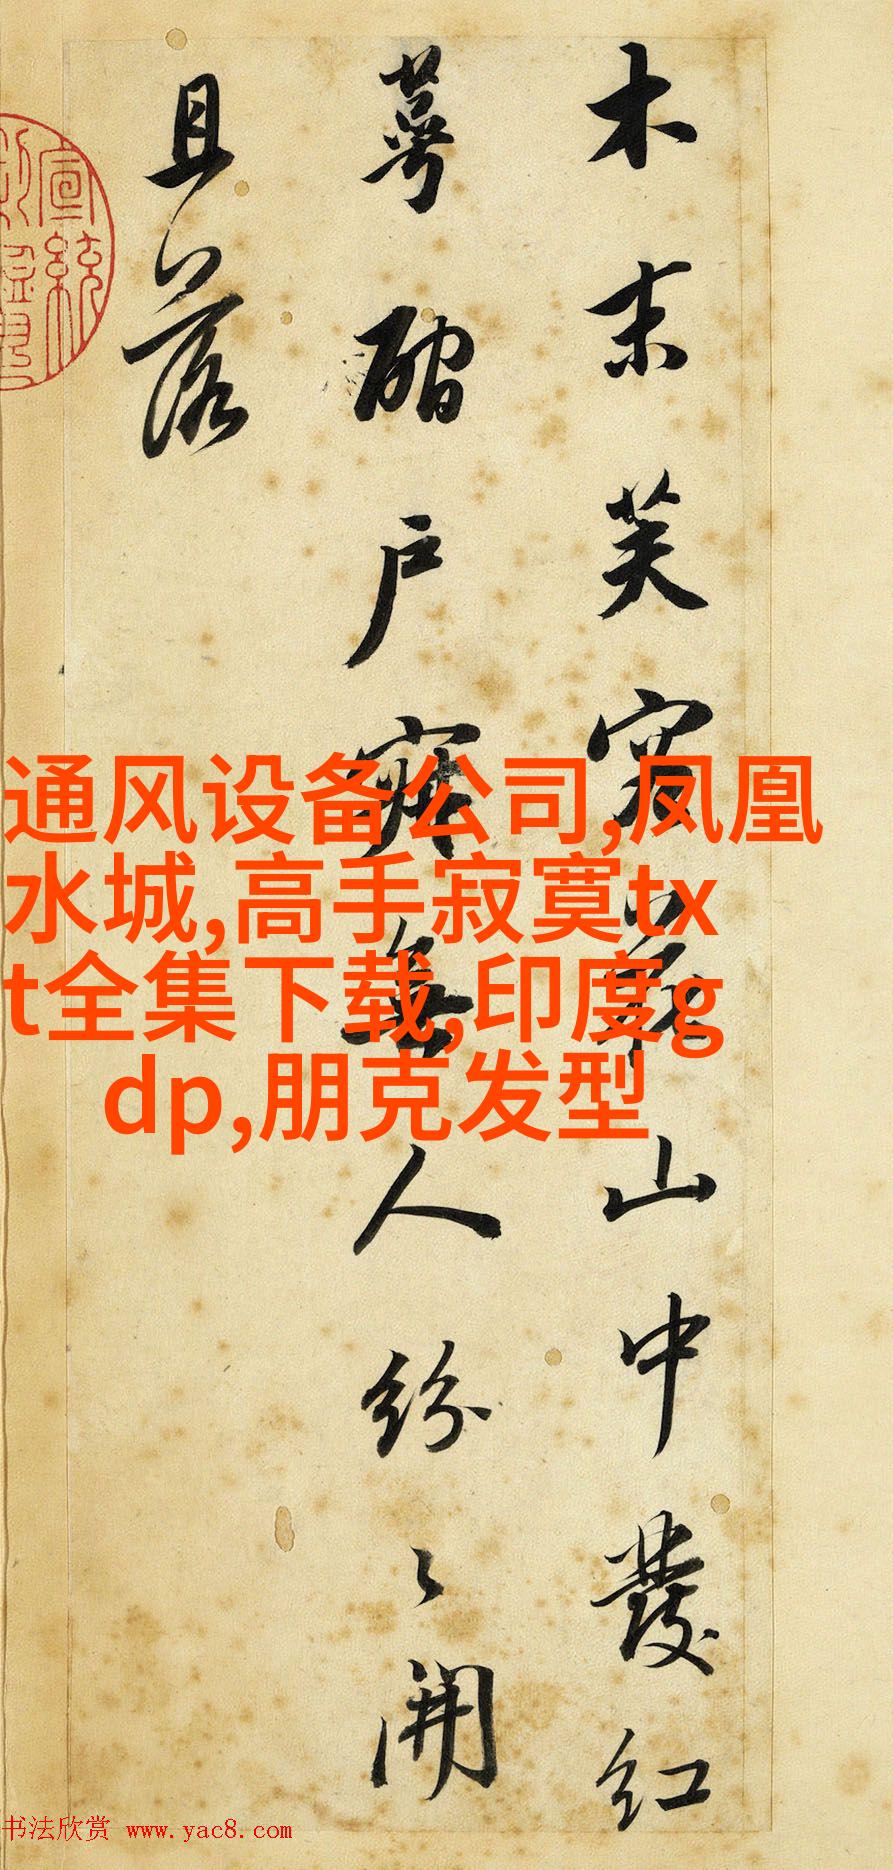 木末芙山中發紅
萼戶寂無人紛〻開
且落
宣統
通风设备公司,凤凰
水城,高手寂寞tx
t全集下载,印度g
dp,朋克发型
书法欣赏 www.yac8.com